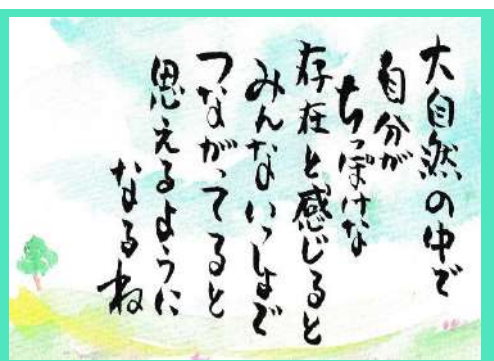 大自然の中で
自分が
ちっぽけな
存在と感じると
みんないっしょで
つながってると
思えるように
なるね